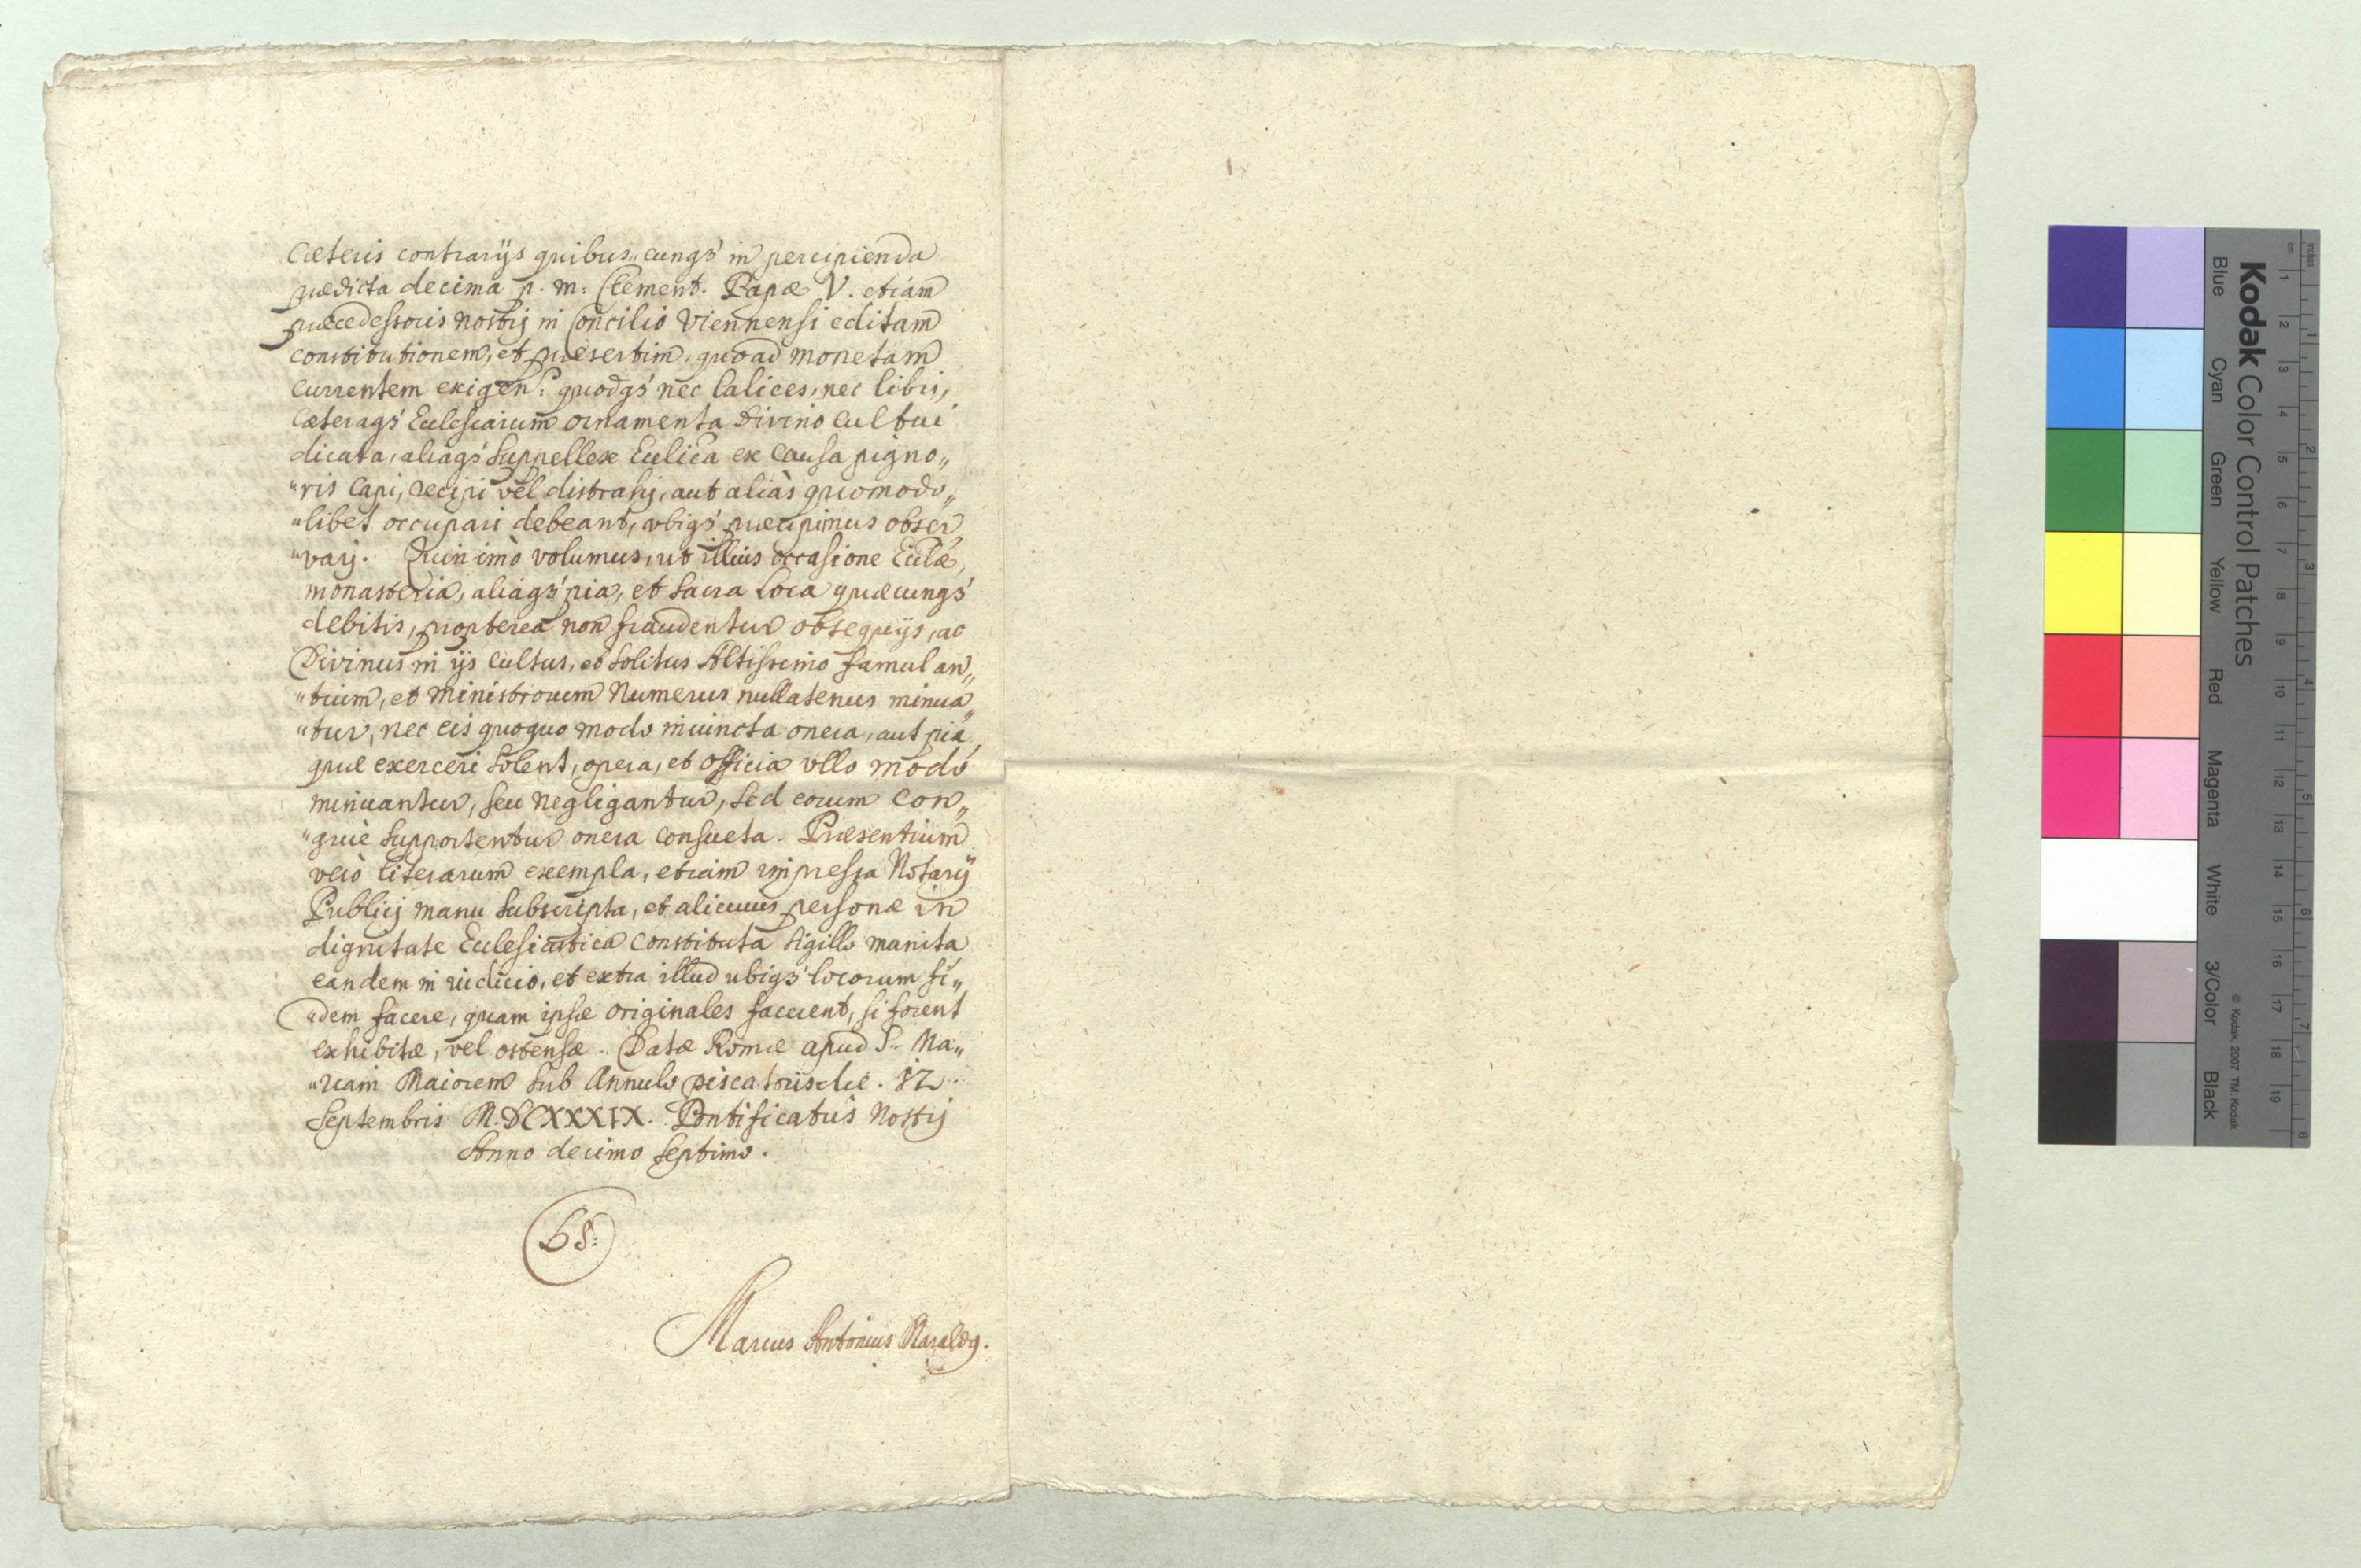 Cæteris contrarijs quibus„cunq3 in percipienda
prædicta decima p. m: Clement. Papæ V. etiam
præcedessoris nostrj in Concilio Viennensi editam
constitutionem, et præsertim, quoad monetam
currentem exigen: quodq3 nec Calices, nec libri,
Cæteraq3 Ecclesiarum ornamenta Divino Cultui
dicata, aliaq3 Suppellex Ecclica ex Causa pigno„
„ris Capi, recipi vel distrahj, aut aliàs quomodo„
„libet occupari debeant, vbiq3 præcipimus obser„
„varj. Quin imò volumus, ut illius occasione Eccłæ,
monasteria, aliaq3 pia, et Sacra Loca quæcunq3
debitis, propterea non fraudentur obsequijs, ac
Divinus in ijs Cultus, et Solitus Altissimo famulan„
„tium, et ministrorum Numerus nullatenus minua„
„tur, nec eis quoquo modo iniuncta onera, aut pia,
quæ exerceri Solent, opera, et officia vllo modo
minuantur, seu negligantur, Sed eorum Con„
„gruè Supportentur onera Consueta. Præsentium
verò literarum exempla, etiam impressa Notarij
Publicj manu Subscripta, et alicuius personæ in
dignitate Ecclesiastica Constituta Sigillo manita
eandem in iudicio, et extra illud ubiq3 locorum fi„
„dem facere, quam ipsæ originales facerent, si forent
exhibitæ, vel ostensæ. Datæ Romæ apud S. Ma„
„riam Maiorem Sub Annulo piscatoris die. 12.
Septembris M.DCXXXIX. Pontificatus Nostrj
Anno decimo Septimo.
LS:
Marcus Antonius Maraldg.
Kodak Color Control Patches
Blue Cyan Green Yellow Red Magenta White 3/Color Black
© Kodak, 2007 TM: Kodak
inches 1 2 3 4 5 6 7 8
cm 1 2 3 4 5 6 7 8 9 10 11 12 13 14 15 16 17 18 19